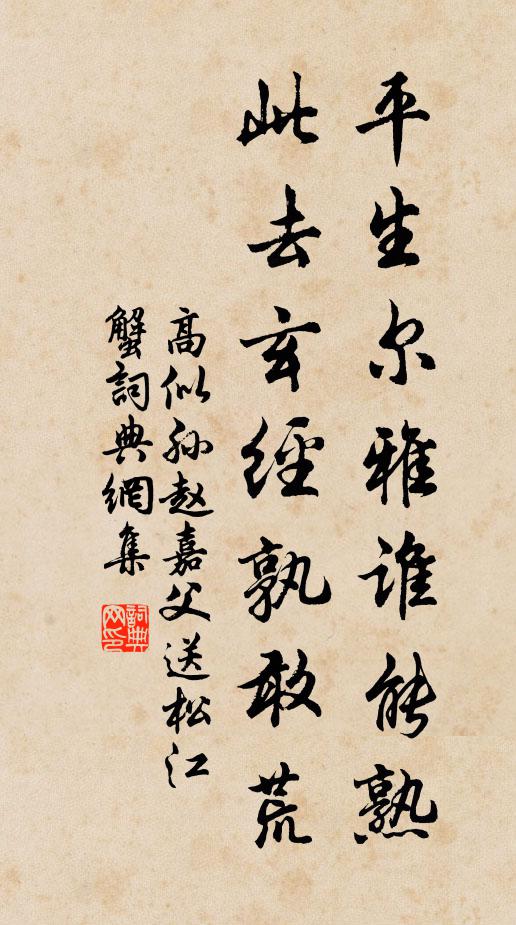 平生尔雅谁能熟
此去玄經孰敢荒
高似孙赵嘉父送松江
蟹詞典網集
詞典网印